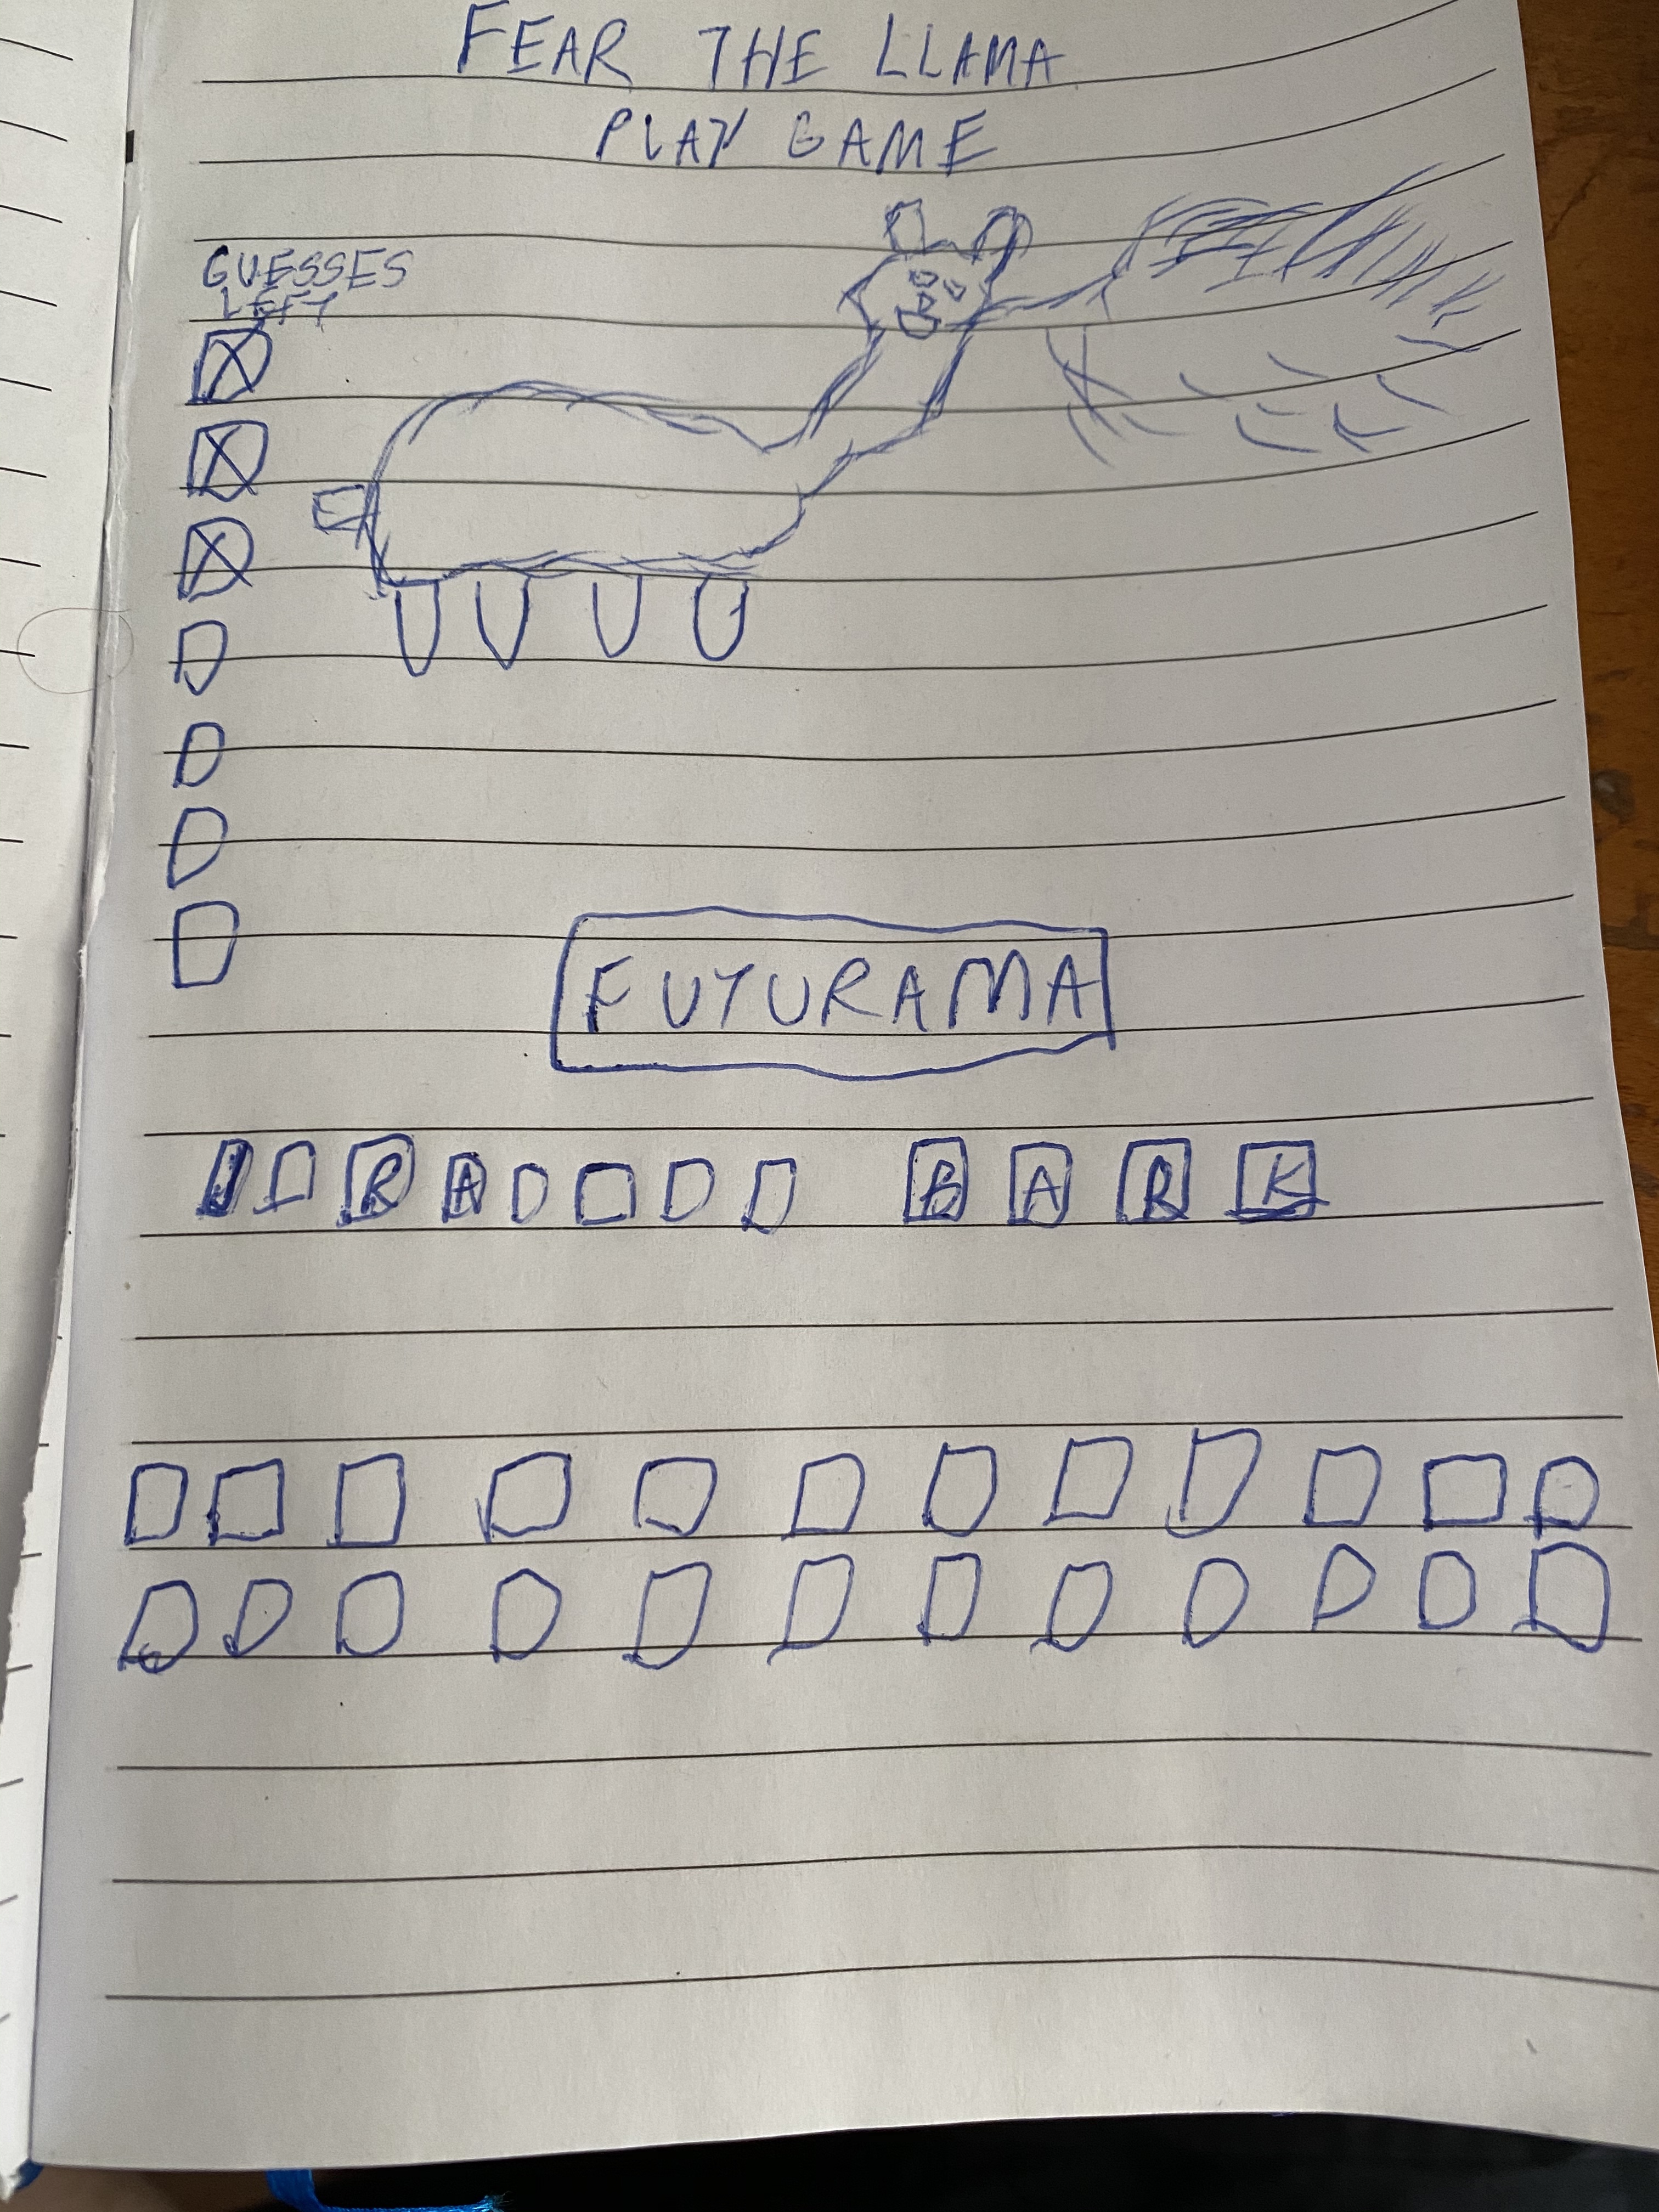 FEAR THE LLAMA
PLAY GAME
GUESSES
LEFT
FUTURAMA
J R A B A R K